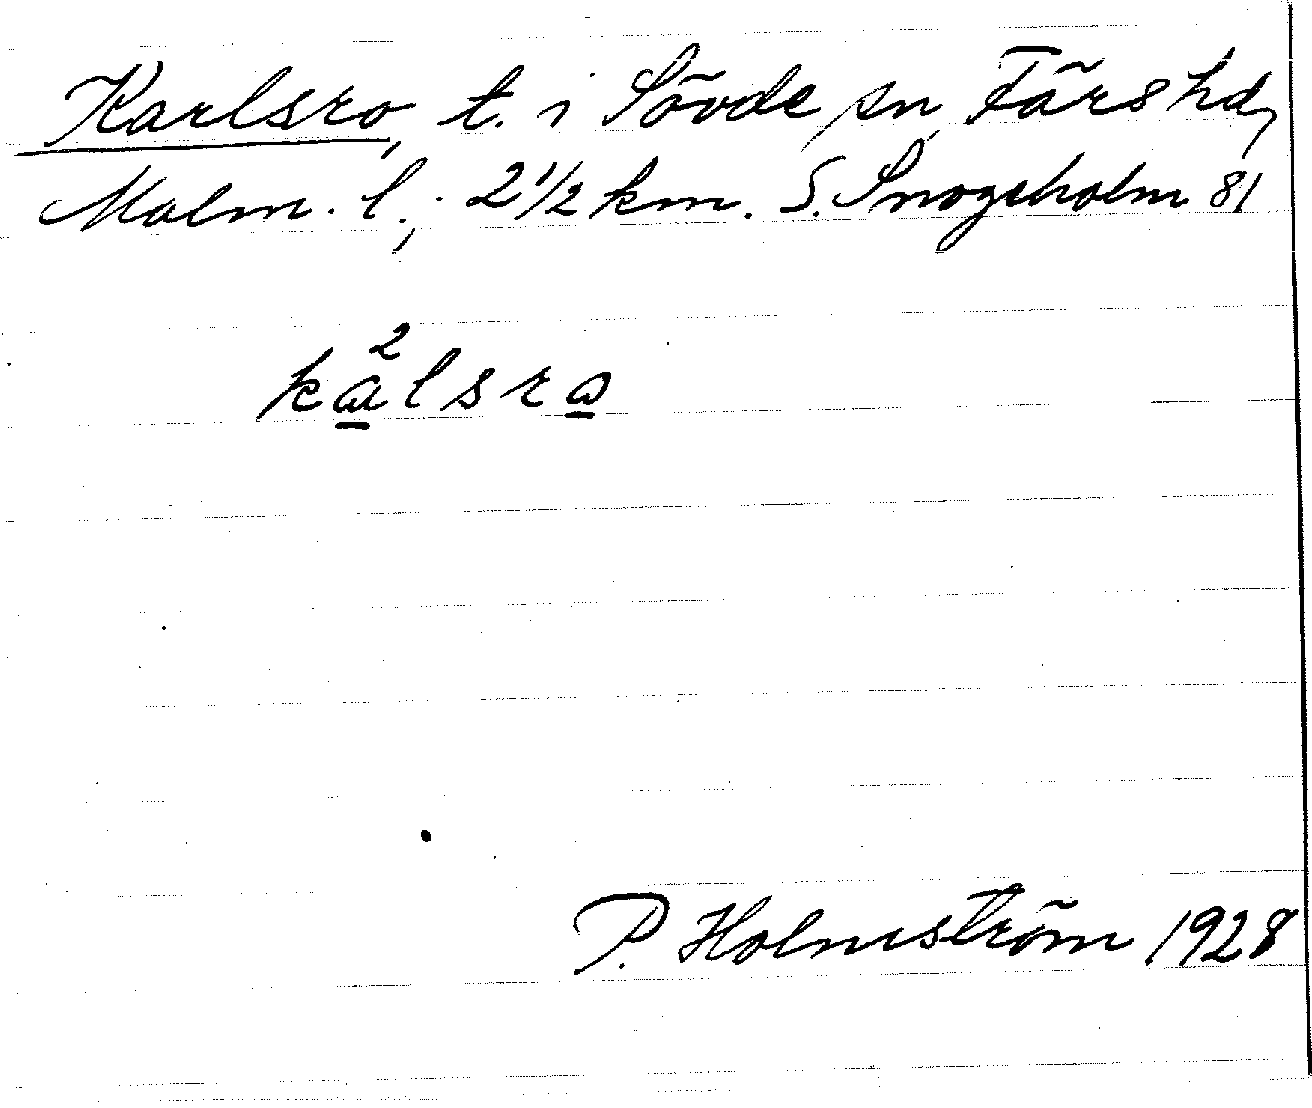 Karlsro, t. i Sövde sn, Färs hd,
Malm. l.; 2 1/2 km. S. Snogeholm 81
ka²lsra
P. Holmström 1928